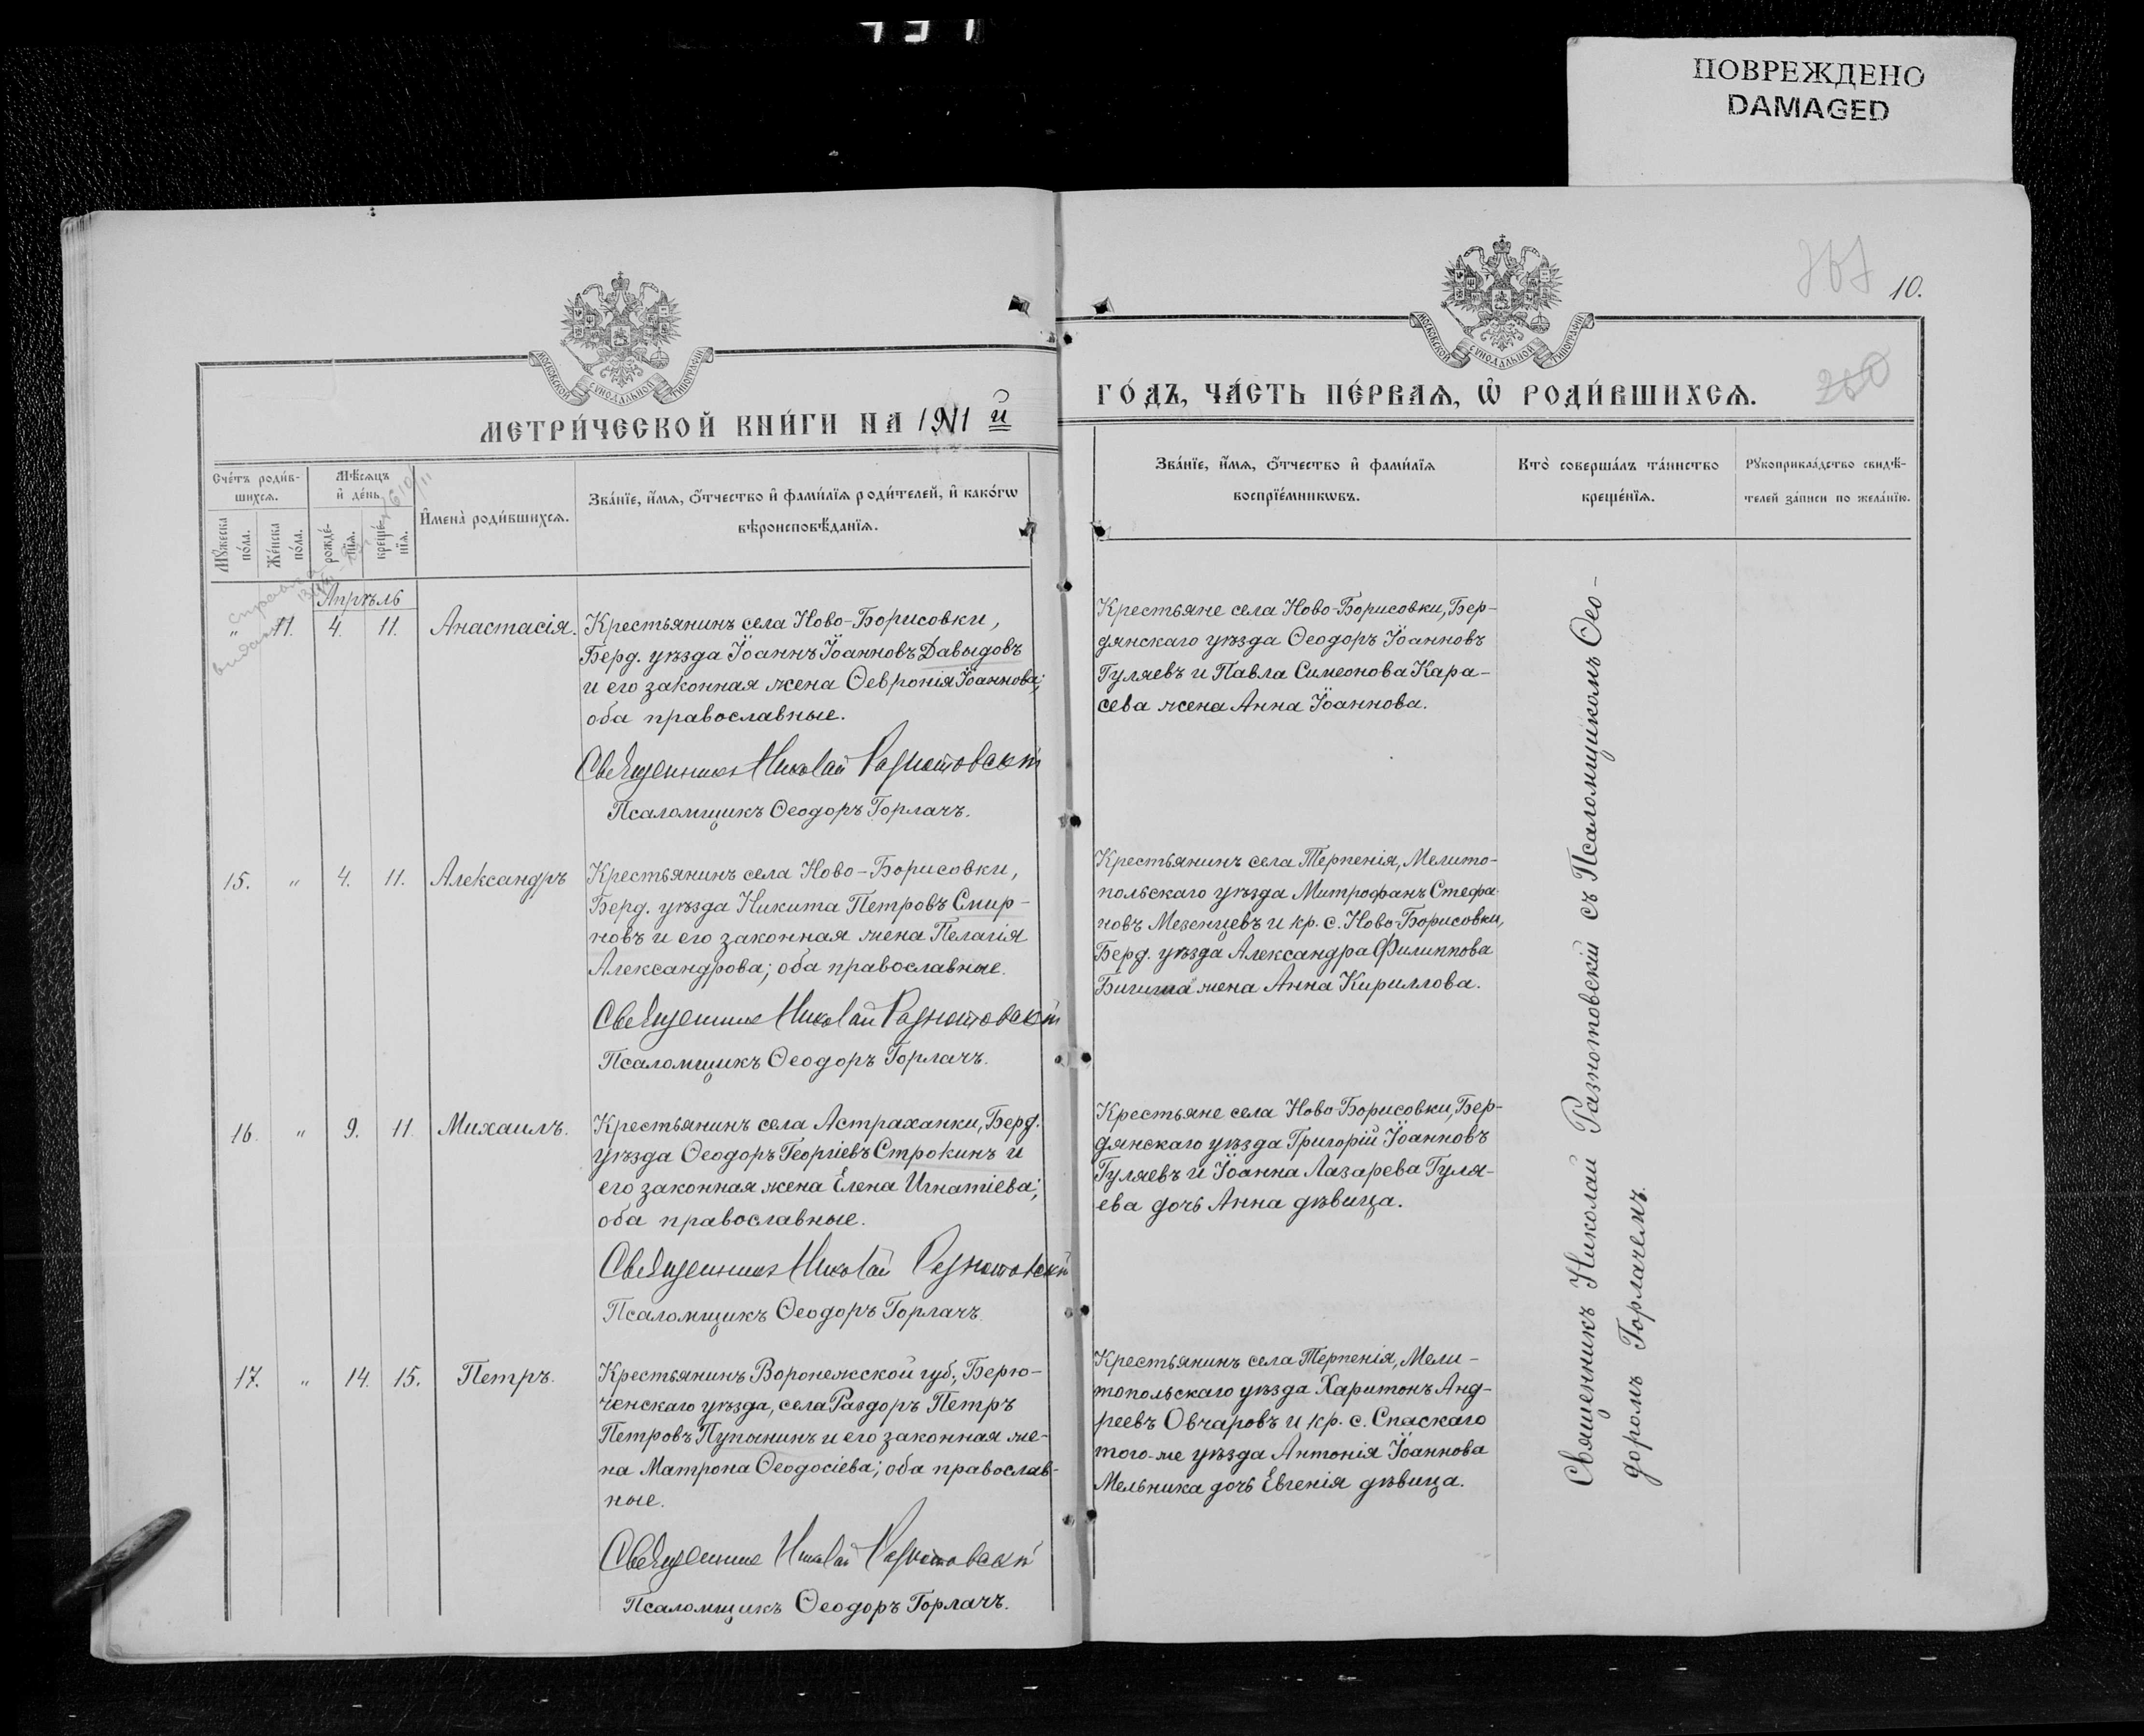 ПОВРЕЖДЕНО
DAMAGED
10.
МОСКОВСКОЙ СѴНОДАЛЬНОЙ ТИПОГРАФІИ
МОСКОВСКОЙ СѴНОДАЛЬНОЙ ТИПОГРАФІИ
МЕТРИ́ЧЕСКОЙ КНИ́ГИ НА 1911 й
ГО́ДЪ, ЧА́СТЬ ПЕ́РВАѦ, Ѡ҆ РОДИ́ВШИХСѦ.
Сче́тъ роди́в-
шихсѧ.
Мѣ́сѧцъ
и҆ де́нь
Мꙋ́жеска
по́ла.
Же́нска
по́ла.
рожде́-
нїѧ.
креще́-
нїѧ.
И҆мена̀ роди́вшихсѧ.
Зва́нїе, и҆́мѧ, ѻ҆́тчество и҆ фами́лїѧ роди́телей, и҆ како́гѡ
вѣроисповѣ́данїѧ.
Зва́нїе, и҆́мѧ, ѻ҆́тчество и҆ фами́лїѧ
воспрїе́мникѡвъ.
Кто̀ соверша́лъ та́инство
креще́нїѧ.
Рꙋкоприкла́дство свидѣ́-
телей за́писи по жела́нїю.
Апрѣль
" 11. 4. 11. Анастасія.
Крестьянинъ села Ново-Борисовки,
Берд. уѣзда Іоаннъ Іоанновъ Давыдовъ
и его законная жена Ѳевронія Іоаннова;
оба православные.
Священникъ Николай Разнотовскій
Псаломщикъ Ѳеодоръ Горлачъ.
Крестьяне села Ново-Борисовки, Бер-
дянскаго уѣзда Ѳеодоръ Іоанновъ
Гуляевъ и Павла Симеонова Кара-
сева жена Анна Іоаннова.
15. " 4. 11. Александръ
Крестьянинъ села Ново-Борисовки,
Берд. уѣзда Никита Петровъ Смир-
новъ и его законная жена Пелагія
Александрова; оба православные.
Священникъ Николай Разнотовскій
Псаломщикъ Ѳеодоръ Горлачъ.
Крестьянинъ села Терпенія, Мелито-
польскаго уѣзда Митрофанъ Стефа-
новъ Мезенцевъ и кр. с. Ново-Борисовки,
Берд. уѣзда Александра Филиппова
жена Анна Кириллова.
16. " 9. 11. Михаилъ.
Крестьянинъ села Астраханки, Берд.
уѣзда Ѳеодоръ Георгіевъ Строкинъ и
его законная жена Елена Игнатіева;
оба православные.
Священникъ Николай Разнотовскій
Псаломщикъ Ѳеодоръ Горлачъ.
Крестьяне села Ново-Борисовки, Бер-
дянскаго уѣзда Григорій Іоанновъ
Гуляевъ и Іоанна Лазарева Гуля-
ева дочь Анна дѣвица.
17. " 14. 15. Петръ.
Крестьянинъ Воронежской губ., Бирю-
ченскаго уѣзда, села Раздоръ Петръ
Петровъ Пупынинъ и его законная же-
на Матрона Ѳеодосіева; оба православ-
ные.
Священникъ Николай Разнотовскій
Псаломщикъ Ѳеодоръ Горлачъ.
Крестьянинъ села Терпенія, Мели-
топольскаго уѣзда Харитонъ Анд-
реевъ Овчаровъ и кр. с. Спаскаго
того-же уѣзда Антонія Іоаннова
Мельника дочь Евгенія дѣвица.
Священникъ Николай Разнотовскій съ Псаломщикомъ Ѳео-
доромъ Горлачемъ.